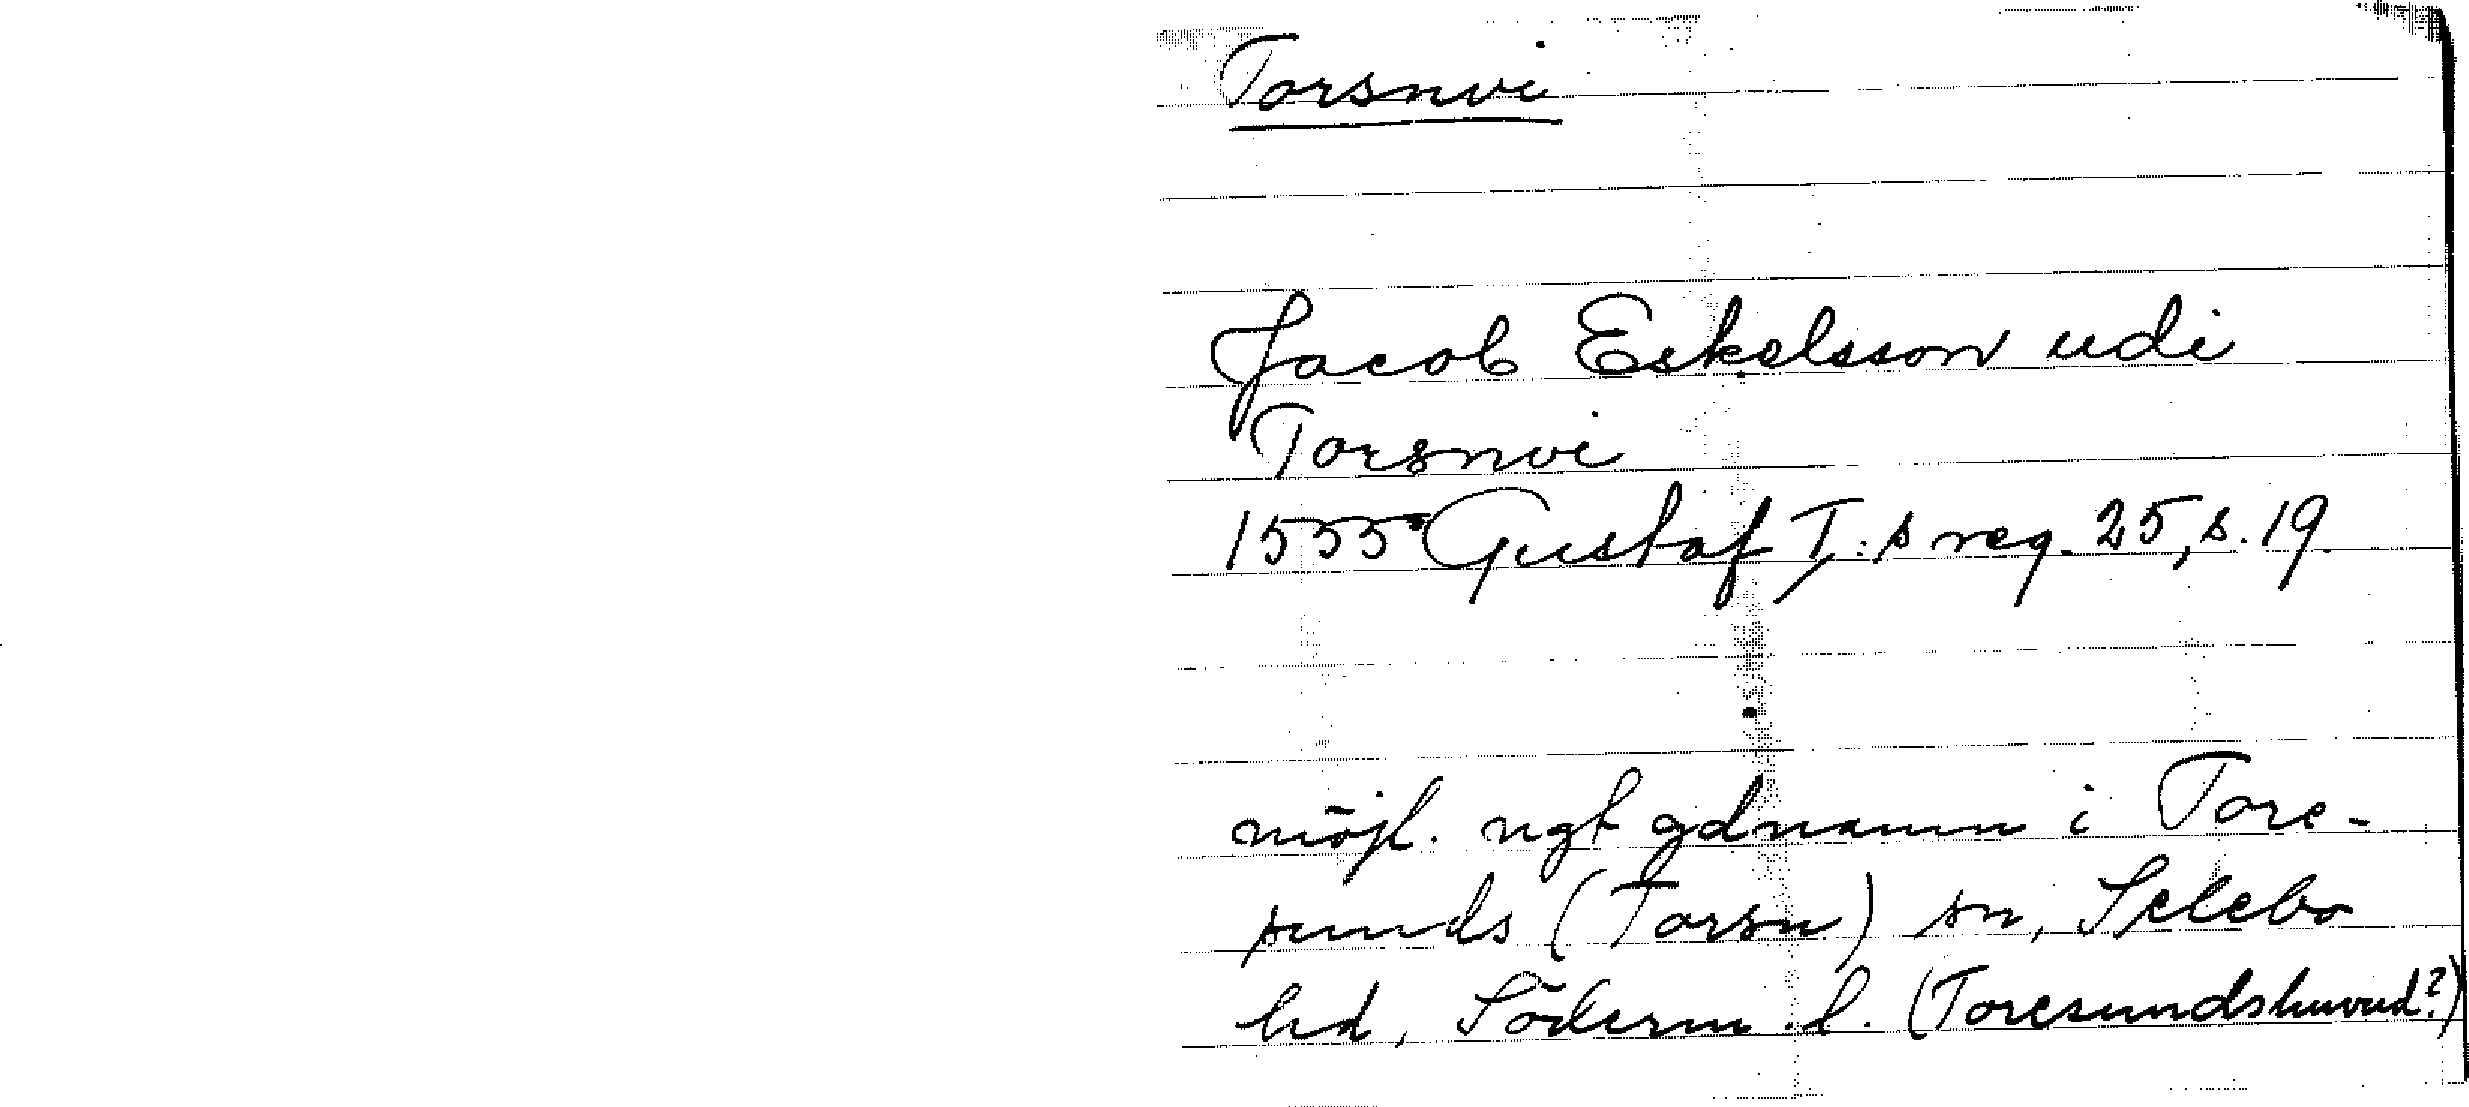 Torsnvi
Jacob Eskelsson udi
Torsnvi
1555 Gustaf I:s reg. 25, s. 19.
möjl. ngt gdnamn i Tore-
sunds (Torsn) sn, Selebo
hd, Söderm. l. (Toresundshuvud?)